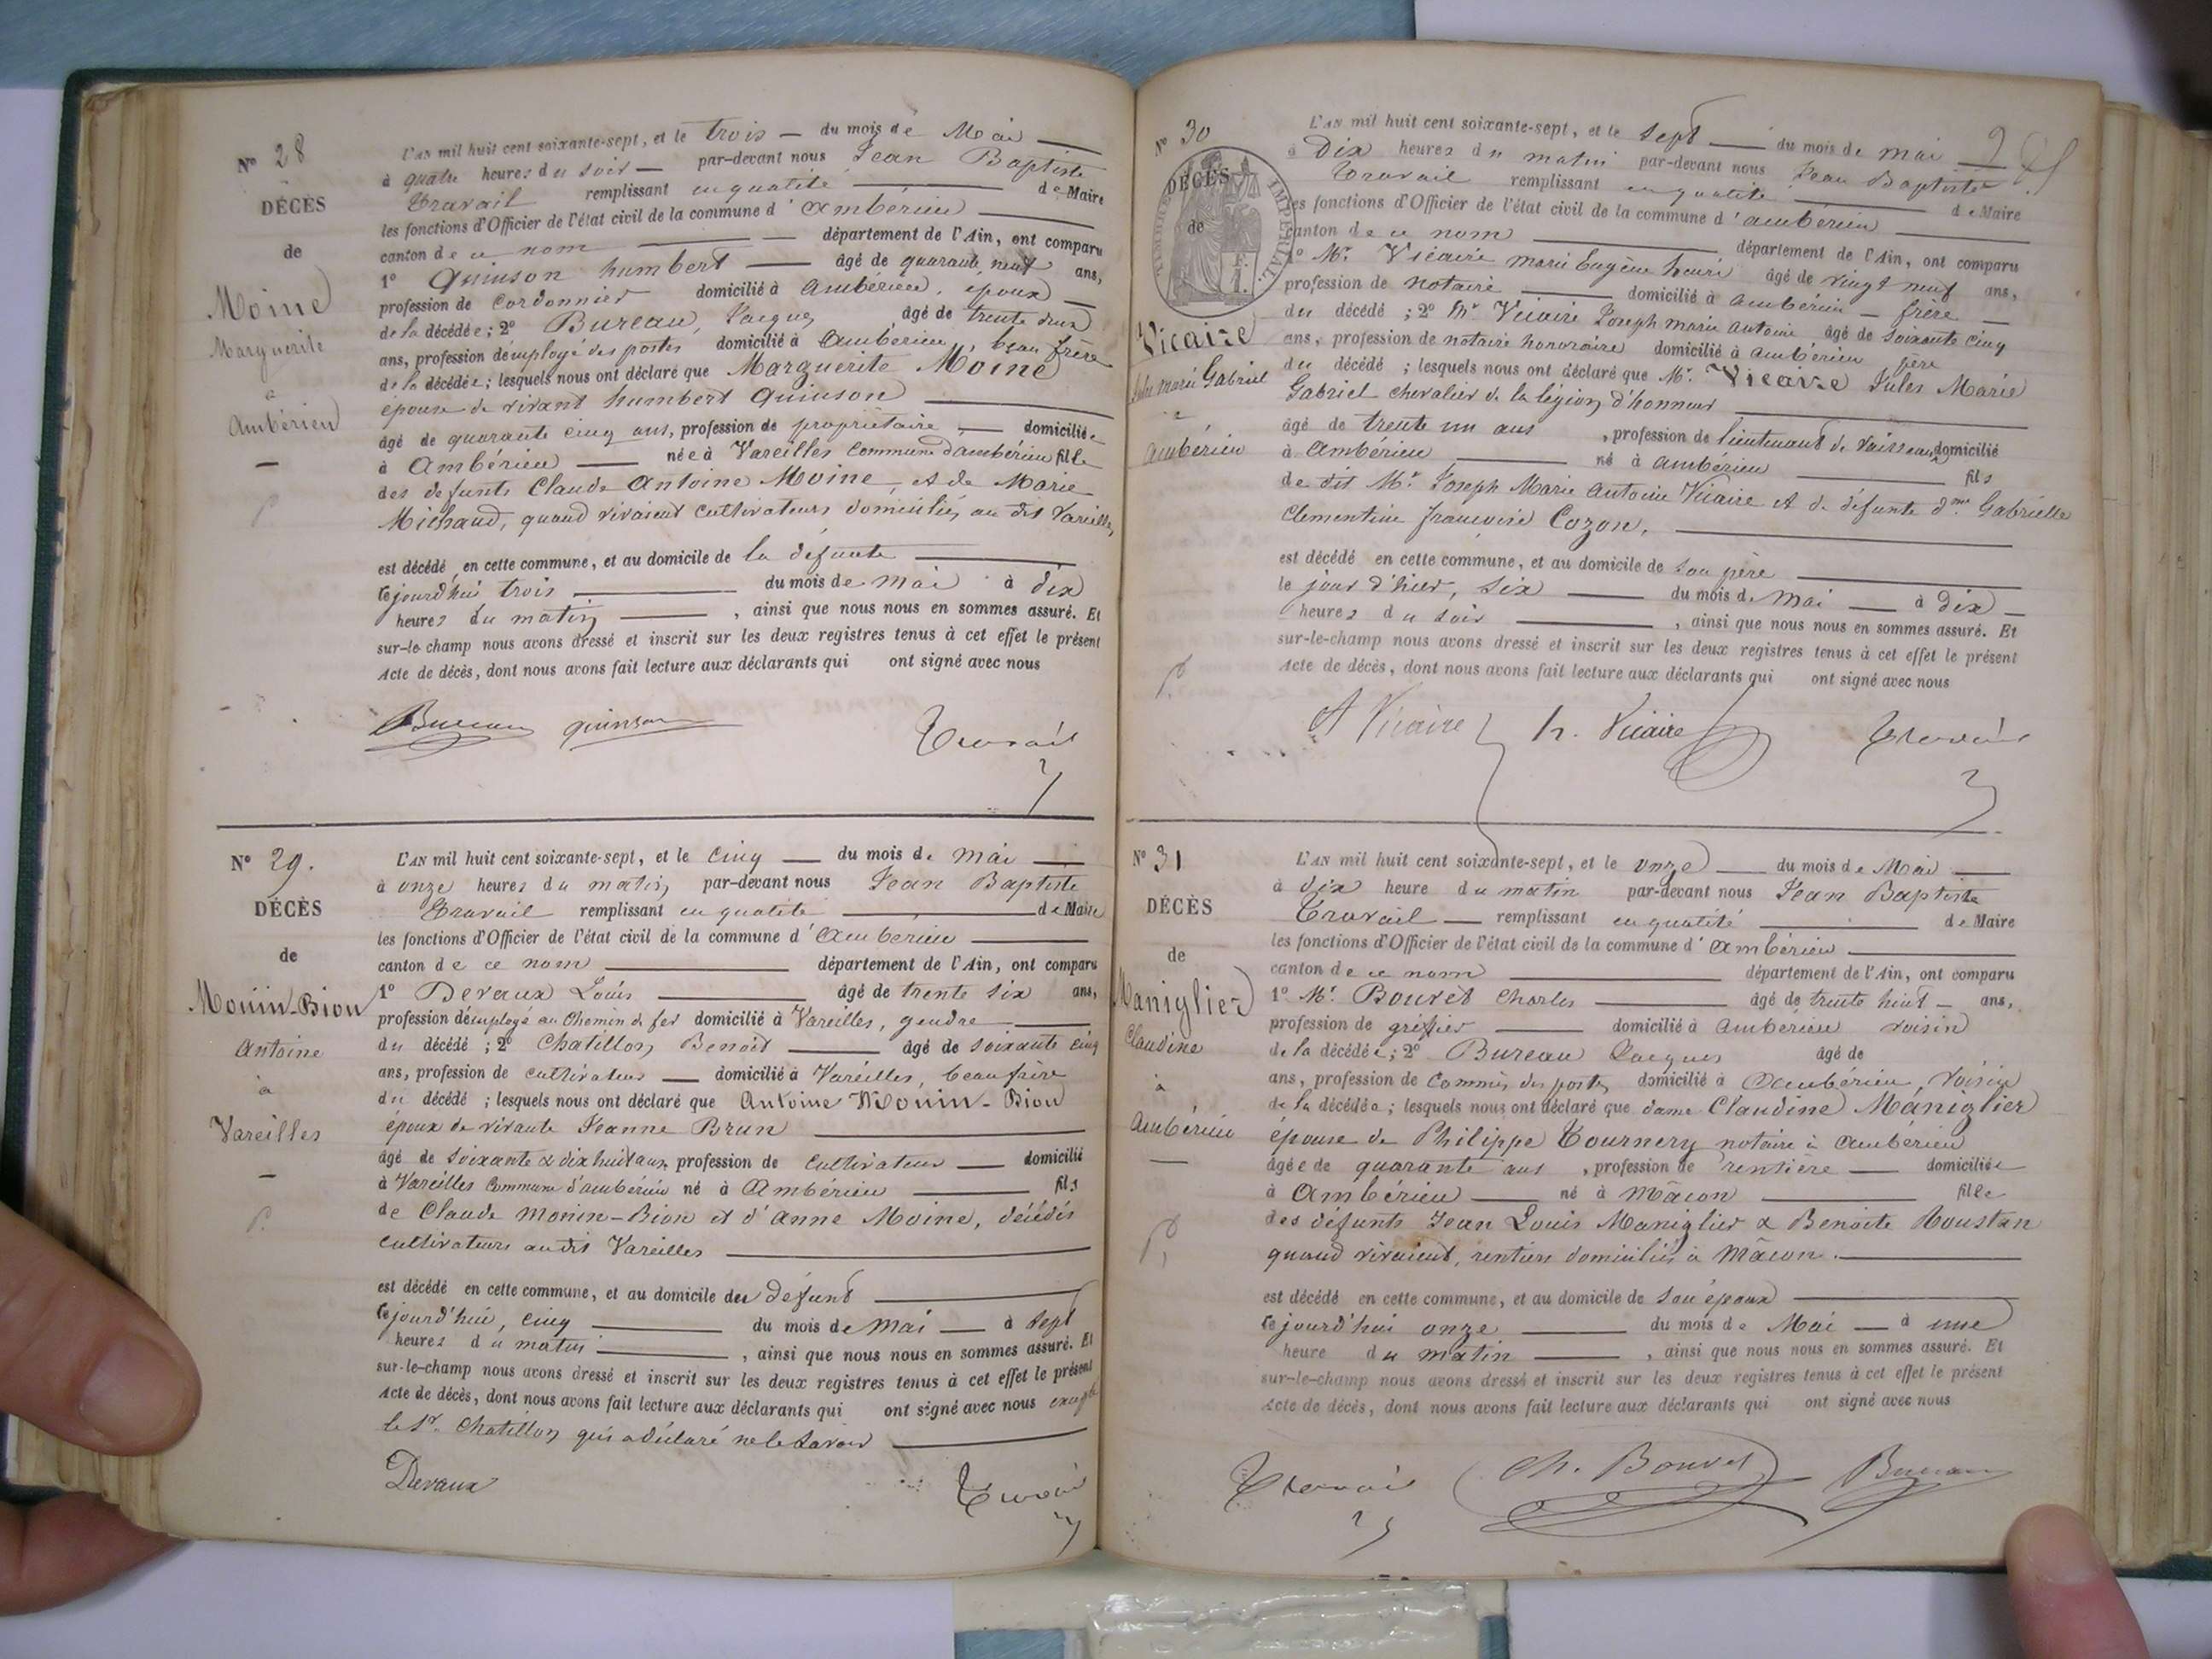 N° 28
DÉCÈS
de
Moine
Marguerite
à
Ambérieu
L'AN mil huit cent soixante-sept, et le trois du mois de Mai
à quatre heures du soir par-devant nous Jean Baptiste
Travail remplissant en qualité de Maire
les fonctions d'Officier de l'état civil de la commune d'Ambérieu
canton de ce nom département de l'Ain, ont comparu
1° Quinson humbert âgé de quarante neuf ans,
profession de Cordonnier domicilié à Ambérieu, époux
de la décédée ; 2° Bureau, Jacques âgé de trente deux
ans, profession d'employé des postes domicilié à Ambérieu, beau frère
de la décédée ; lesquels nous ont déclaré que Marguerite Moine
épouse de vivant humbert Quinson
âgé de quarante cinq ans, profession de propriétaire, domiciliée
à Ambérieu née à Vareilles commune d'ambérieu fille
des défunts Claude Antoine Moine, et de Marie
Michaud, quand vivaient cultivateurs domiciliés au dit Vareilles,
est décédé en cette commune, et au domicile de la défunte
cejourd'hui trois du mois de mai à dix
heures du matin, ainsi que nous nous en sommes assuré. Et
sur-le-champ nous avons dressé et inscrit sur les deux registres tenus à cet effet le présent
Acte de décès, dont nous avons fait lecture aux déclarants qui ont signé avec nous
Bureau quinson Travail
N° 29.
DÉCÈS
de
Monin-Bion
Antoine
à
Vareilles
L'AN mil huit cent soixante-sept, et le cinq du mois de mai
à onze heures du matin, par-devant nous Jean Baptiste
Travail remplissant en qualité de Maire
les fonctions d'Officier de l'état civil de la commune d'Ambérieu
canton de ce nom département de l'Ain, ont comparu
1° Devaux Louis âgé de trente six ans,
profession d'employé au Chemin de fer domicilié à Vareilles, gendre
du décédé ; 2° Chatillon Benoît âgé de soixante cinq
ans, profession de cultivateur domicilié à Vareilles, beau frère
du décédé ; lesquels nous ont déclaré que Antoine Monin-Bion
époux de vivante Jeanne Brun
âgé de soixante & dix huit ans, profession de cultivateur domicilié
à Vareilles commune d'ambérieu né à Ambérieu fils
de Claude Monin-Bion et d'Anne Moine, décédés
cultivateurs audit Vareilles
est décédé en cette commune, et au domicile du défunt
cejourd'hui, cinq du mois de mai à sept
heures du matin, ainsi que nous nous en sommes assuré. Et
sur-le-champ nous avons dressé et inscrit sur les deux registres tenus à cet effet le présent
Acte de décès, dont nous avons fait lecture aux déclarants qui ont signé avec nous excepté
le Sr. Chatillon qui a déclaré ne le savoir
Devaux Travail
N° 30
DÉCÈS
de
TIMBRE IMPERIAL
Vicaire
Jules marie Gabriel
à
Ambérieu
L'AN mil huit cent soixante-sept, et le sept du mois de mai
à Dix heures du matin par-devant nous Jean Baptiste
Travail remplissant en qualité de Maire
les fonctions d'Officier de l'état civil de la commune d'ambérieu
canton de ce nom département de l'Ain, ont comparu
1° Mr. Vicaire marie Eugène henri âgé de vingt neuf ans,
profession de notaire domicilié à Ambérieu frère
du décédé ; 2° Mr. Vicaire Joseph marie antoine âgé de soixante cinq
ans, profession de notaire honoraire domicilié à ambérieu père
du décédé ; lesquels nous ont déclaré que Mr. Vicaire Jules Marie
Gabriel chevalier de la légion d'honneur
âgé de trente un ans, profession de lieutenant de vaisseau, domicilié
à Ambérieu né à Ambérieu fils
de dit Mr. Joseph Marie Antoine Vicaire et de défunte dme. Gabrielle
Clementine françoise Cozon.
est décédé en cette commune, et au domicile de son père
le jour d'hier, six du mois de mai à dix
heures du soir, ainsi que nous nous en sommes assuré. Et
sur-le-champ nous avons dressé et inscrit sur les deux registres tenus à cet effet le présent
Acte de décès, dont nous avons fait lecture aux déclarants qui ont signé avec nous
A Vicaire h. Vicaire Travail
N° 31
DÉCÈS
de
Maniglier
Claudine
à
Ambérieu
L'AN mil huit cent soixante-sept, et le onze du mois de Mai
à dix heure du matin par-devant nous Jean Baptiste
Travail remplissant en qualité de Maire
les fonctions d'Officier de l'état civil de la commune d'Ambérieu
canton de ce nom département de l'Ain, ont comparu
1° Mr. Bouvet Charles âgé de trente huit ans,
profession de greffier domicilié à Ambérieu voisin
de la décédée ; 2° Bureau Jacques âgé de
ans, profession de Commis des postes, domicilié à Ambérieu, voisin
de la décédée ; lesquels nous ont déclaré que dame Claudine Maniglier
épouse de Philippe Tournery notaire à Ambérieu
âgée de quarante ans, profession de rentière domiciliée
à Ambérieu né à Mâcon fille
des défunts Jean Louis Maniglier & Benoite Roustan
quand vivaient, rentiers domiciliés à Mâcon.
est décédé en cette commune, et au domicile de son époux
cejourd'hui onze du mois de Mai à une
heure du matin, ainsi que nous nous en sommes assuré. Et
sur-le-champ nous avons dressé et inscrit sur les deux registres tenus à cet effet le présent
Acte de décès, dont nous avons fait lecture aux déclarants qui ont signé avec nous
Travail Ch. Bouvet Bureau